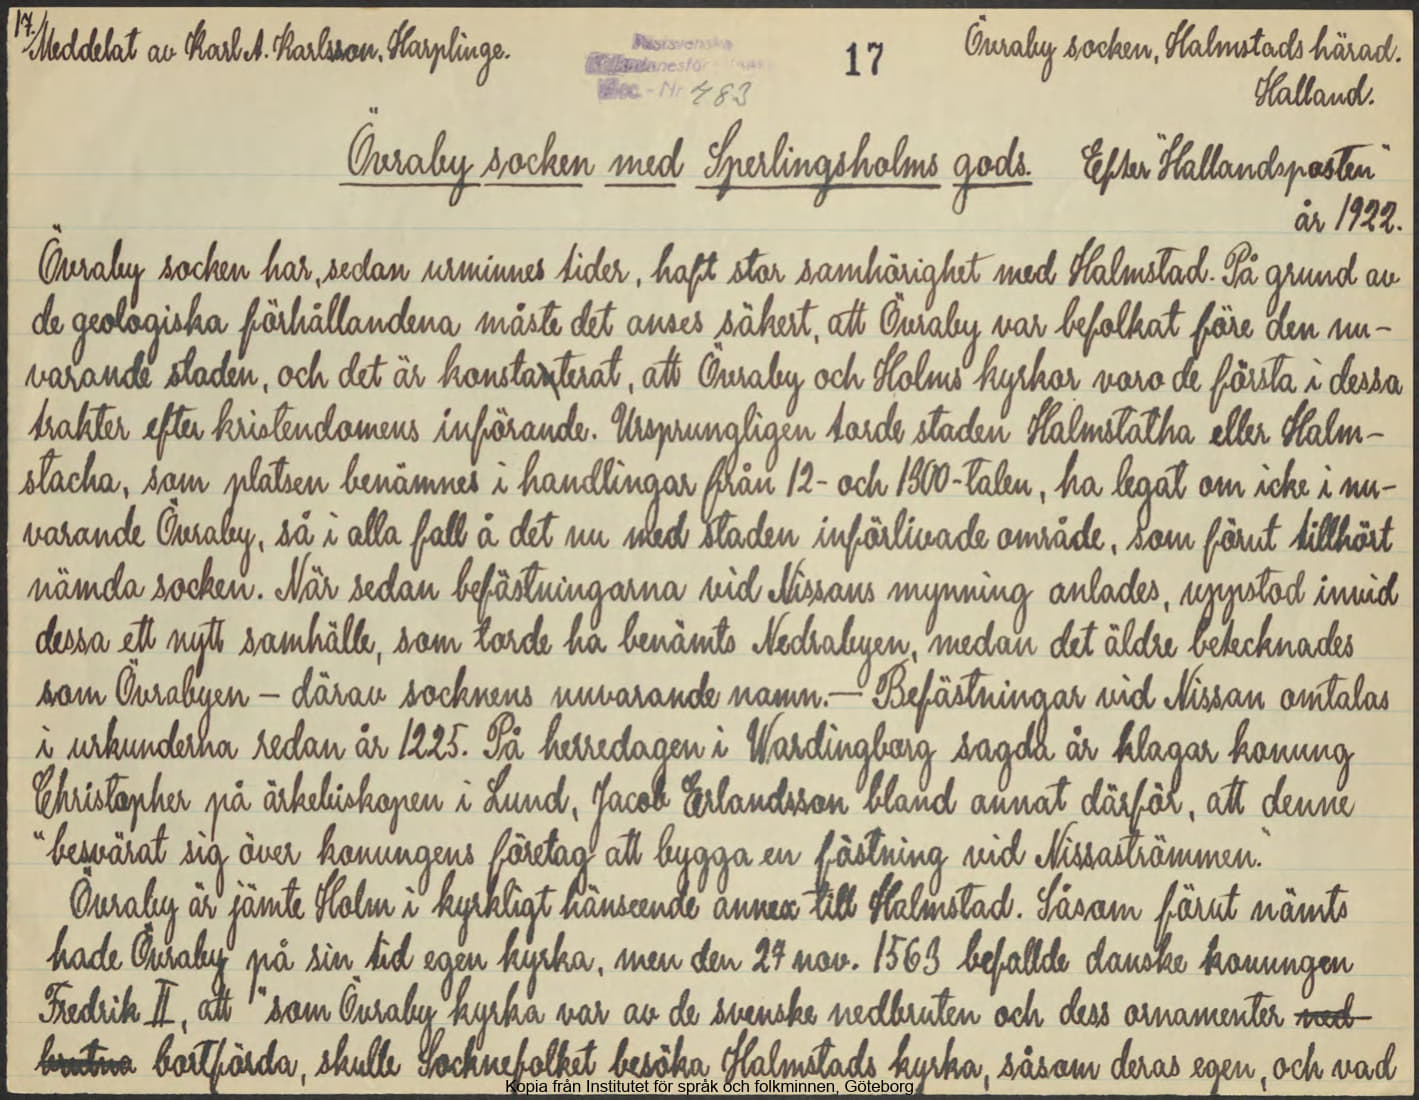 17.
Meddelat av Karl A. Karlsson, Harplinge.
17
Övraby socken, Halmstads härad.
Halland.
483
Övraby socken med Sperlingsholms gods.
Efter "Hallandsposten"
år 1922.
Övraby socken har, sedan urminnes tider, haft stor samhörighet med Halmstad. På grund av
de geologiska förhållandena måste det anses säkert, att Övraby var befolkat före den nu-
varande staden, och det är konstaterat, att Övraby och Holms kyrkor voro de första i dessa
trakter efter kristendomens införande. Ursprungligen torde staden Halmstatha eller Halm-
stacha, som platsen benämnes i handlingar från 12- och 1300-talen, ha legat om icke i nu-
varande Övraby, så i alla fall å det nu med staden införlivade område, som förut tillhört
nämda socken. När sedan befästningarna vid Nissans mynning anlades, uppstod invid
dessa ett nytt samhälle, som torde ha benämts Nedrabyen, medan det äldre betecknades
som Övrabyen – därav socknens nuvarande namn.— Befästningar vid Nissan omtalas
i urkunderna redan år 1225. På herredagen i Wardingborg sagda år klagar konung
Christopher på ärkebiskopen i Lund, Jacob Erlandsson bland annat därför, att denne
"besvärat sig över konungens företag att bygga en fästning vid Nissaströmmen."
Övraby är jämte Holm i kyrkligt hänseende annex till Halmstad. Såsom förut nämts
hade Övraby på sin tid egen kyrka, men den 27 nov. 1563 befallde danske konungen
Fredrik II, att "som Övraby kyrka var av de svenske nedbruten och dess ornamenter ned
brutna bortförda, skulle Socknefolket besöka Halmstads kyrka, såsom deras egen, och vad
Kopia från Institutet för språk och folkminnen, Göteborg